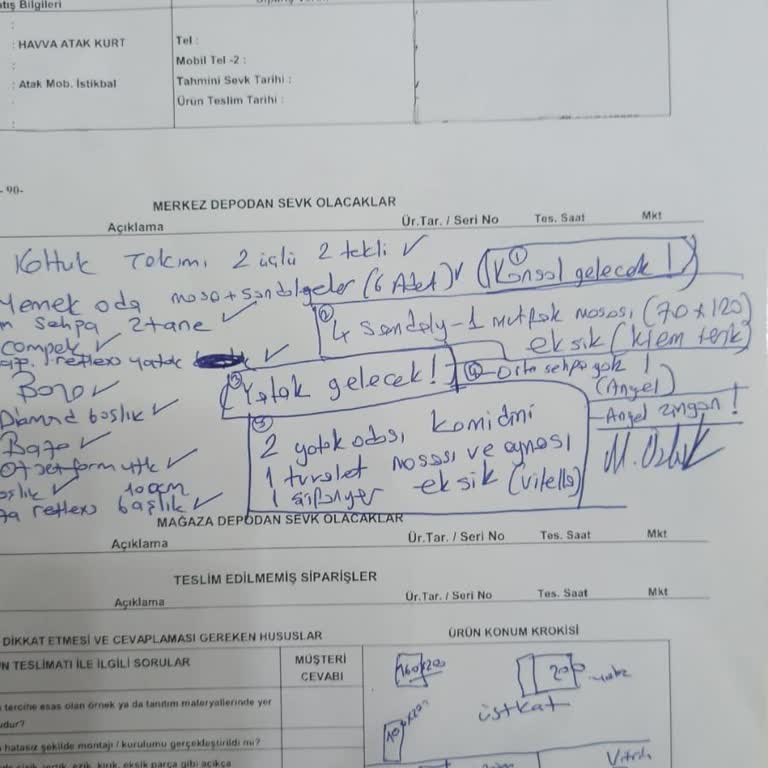 tış Bilgileri
:
: HAVVA ATAK KURT
Tel :
:
Mobil Tel -2 :
: Atak Mob. İstikbal
Tahmini Sevk Tarihi :
Ürün Teslim Tarihi :
:
- 90-
MERKEZ DEPODAN SEVK OLACAKLAR
Açıklama Ür.Tar. / Seri No Tes. Saat Mkt
Koltuk Takımı 2 üçlü 2 tekli ✓ ① Konsol gelecek !
Yemek oda masa + sandalyeler (6 Adet) ✓
sehpa 2 tane ✓
② 4 Sandaly - 1 mutfak masası (70 x 120)
eksik (krem renk)
compek ✓
reflex yatak ✓
③ Yatak gelecek !
④ - Orta sehpa yok !
(Angel)
- Angel zingon !
Baza ✓
Diamond başlık ✓
Baza ✓
⑤
2 yatak odası komidini
1 tuvalet masası ve aynası
1 şifonyer eksik (Vitella)
✓
100cm
reflex başlık ✓
MAĞAZA DEPODAN SEVK OLACAKLAR
Açıklama Ür.Tar. / Seri No Tes. Saat Mkt
TESLİM EDİLMEMİŞ SİPARİŞLER
Açıklama Ür.Tar. / Seri No Tes. Saat Mkt
DİKKAT ETMESİ VE CEVAPLAMASI GEREKEN HUSUSLAR
ÜRÜN KONUM KROKİSİ
N TESLİMATI İLE İLGİLİ SORULAR
MÜŞTERİ
CEVABI
160x200
200
üstkat
100x200
tercihe esas olan örnek ya da tanıtım materyallerinde yer
udur?
hatasız şekilde montajı / kurulumu gerçekleştirildi mi?